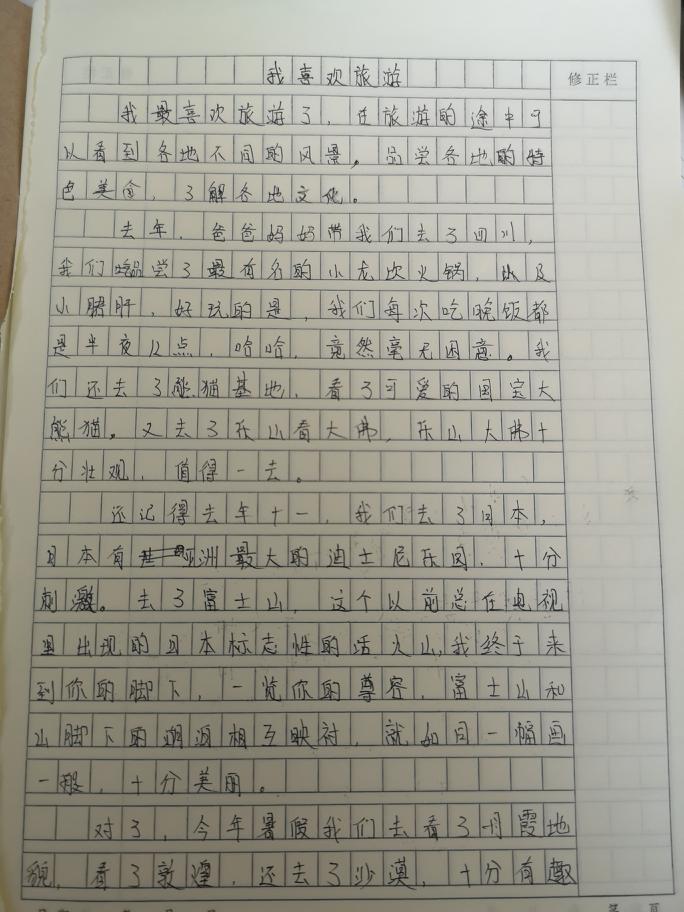 我喜欢旅游
修正栏
我最喜欢旅游了，在旅游的途中可
以看到各地不同的风景。品尝各地的特
色美食，了解各地文化。
去年，爸爸妈妈带我们去了四川，
我们品尝了最有名的小龙坎火锅，以及
小腊肝，好玩的是，我们每次吃晚饭都
是半夜12点，哈哈，竟然毫无困意。我
们还去了熊猫基地，看了可爱的国宝大
熊猫。又去了乐山看大佛，乐山大佛十
分壮观，值得一去。
还记得去年十一，我们去了日本，
日本有亚洲最大的迪士尼乐园，十分
刺激。去了富士山，这个以前总在电视
里出现的日本标志性的活火山，我终于来
到你的脚下，一览你的尊容，富士山和
山脚下的湖泊相互映衬，就如同一幅画
一般，十分美丽。
对了，今年暑假我们去看了丹霞地
貌，看了敦煌，还去了沙漠，十分有趣